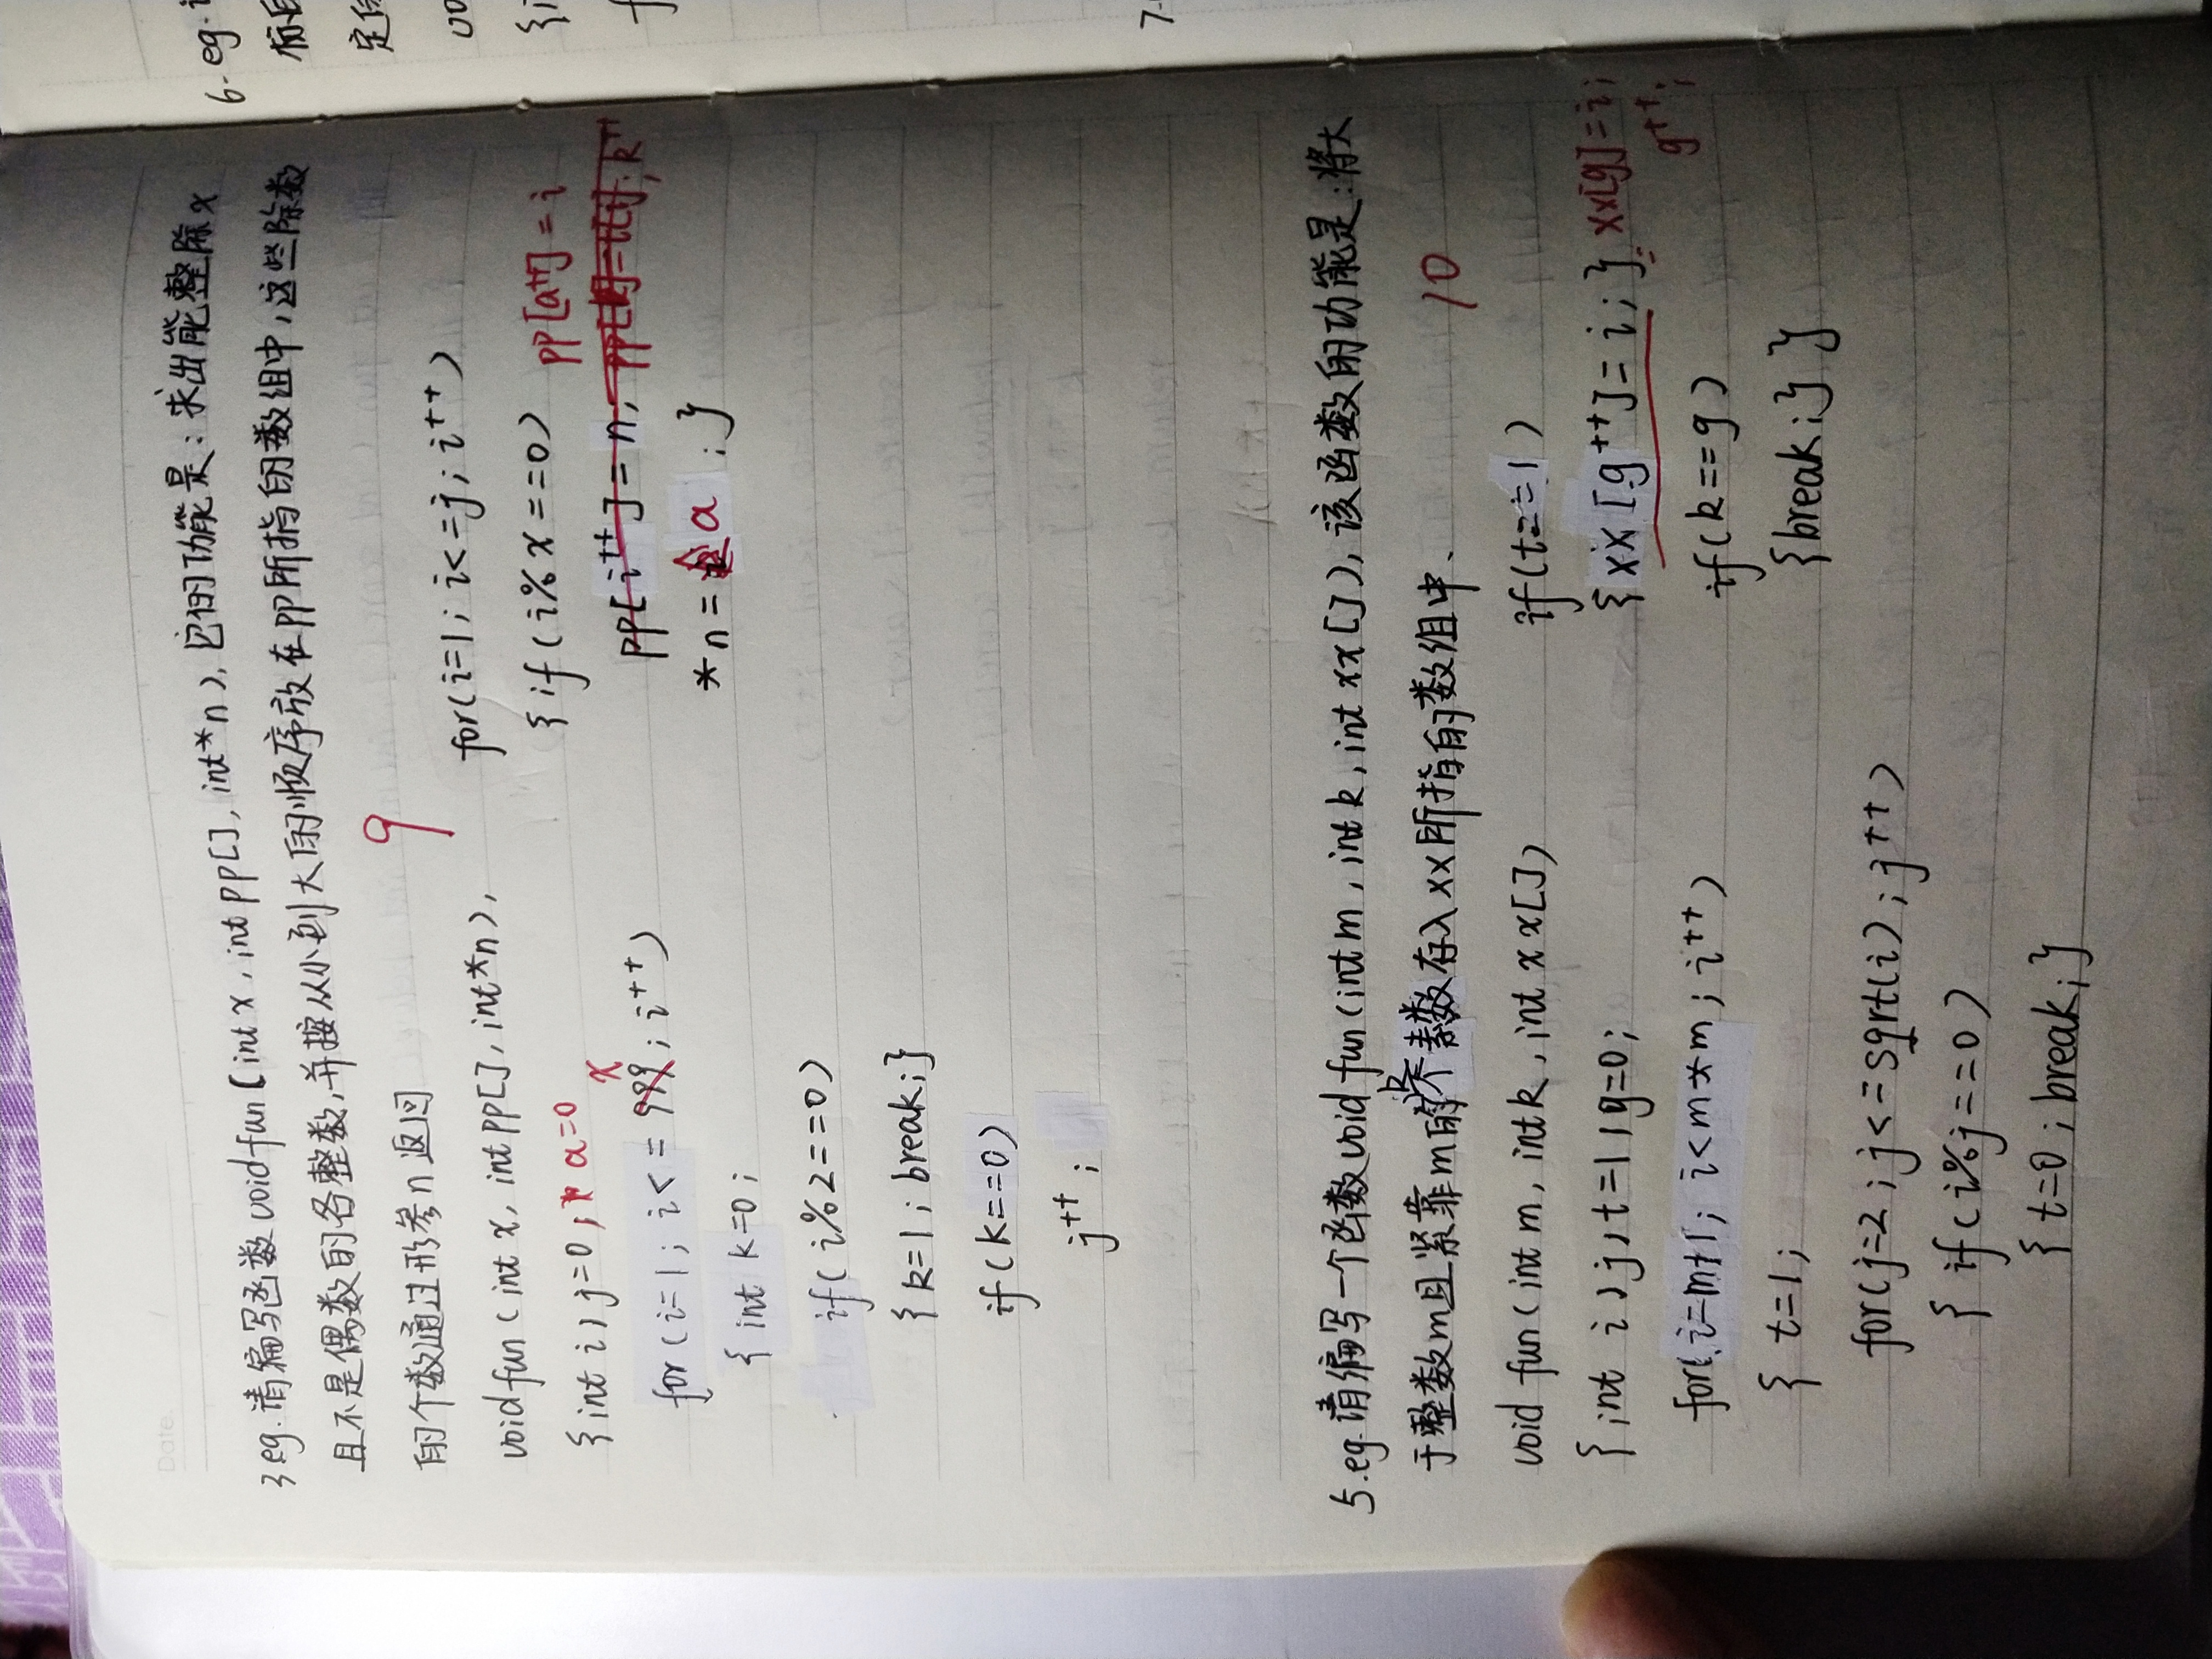 Date.
3 eg. 请编写函数 void fun [int x, int pp[], int*n), 它的功能是: 求出能整除 x
且不是偶数的各整数, 并按从小到大的顺序放在 pp 所指的数组中, 这些除数
的个数通过形参 n 返回
9
void fun (int x, int pp[], int*n),
{int i, j=0, a=0
for (i=1; i<= 999; i++)
x
{ int k=0;
if (i%2==0)
{k=1; break;}
if (k==0)
j++;
for(i=1; i<=j; i++)
{ if (i%x==0) pp[a++]=i
pp[i++]=n;
*n= a ; }
5.eg. 请编写一个函数 void fun (int m, int k, int xx[]), 该函数的功能是: 将大
于整数m且紧靠m的k个素数存入xx所指的数组中、
10
void fun (int m, int k, int xx[])
{ int i, j, t=1, g=0;
for(i=m+1; i<m*m; i++)
{ t=1;
for(j=2; j<=sqrt(i); j++)
{ if (i%j==0)
{ t=0; break;}
if(t==1)
{xx[g++]=i;} xx[g]=i;
g++;
if(k==g)
{break;}}
6. eg.
标
定
7.